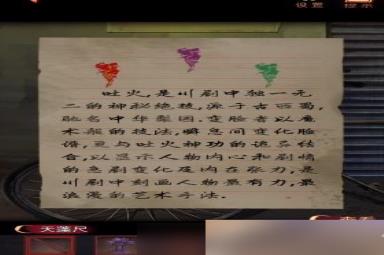 设置 提示
吐火，是川剧中独一无
二的神秘绝技，源于古西蜀，
驰名中华梨园。变脸者以魔
术般的技法，瞬息间变化脸
谱，且与吐火神功的诡异结
合，以显示人物内心和剧情
的急剧变化及内在张力，是
川剧中刻画人物最有力，最
浪漫的艺术手法。
天蓬尺